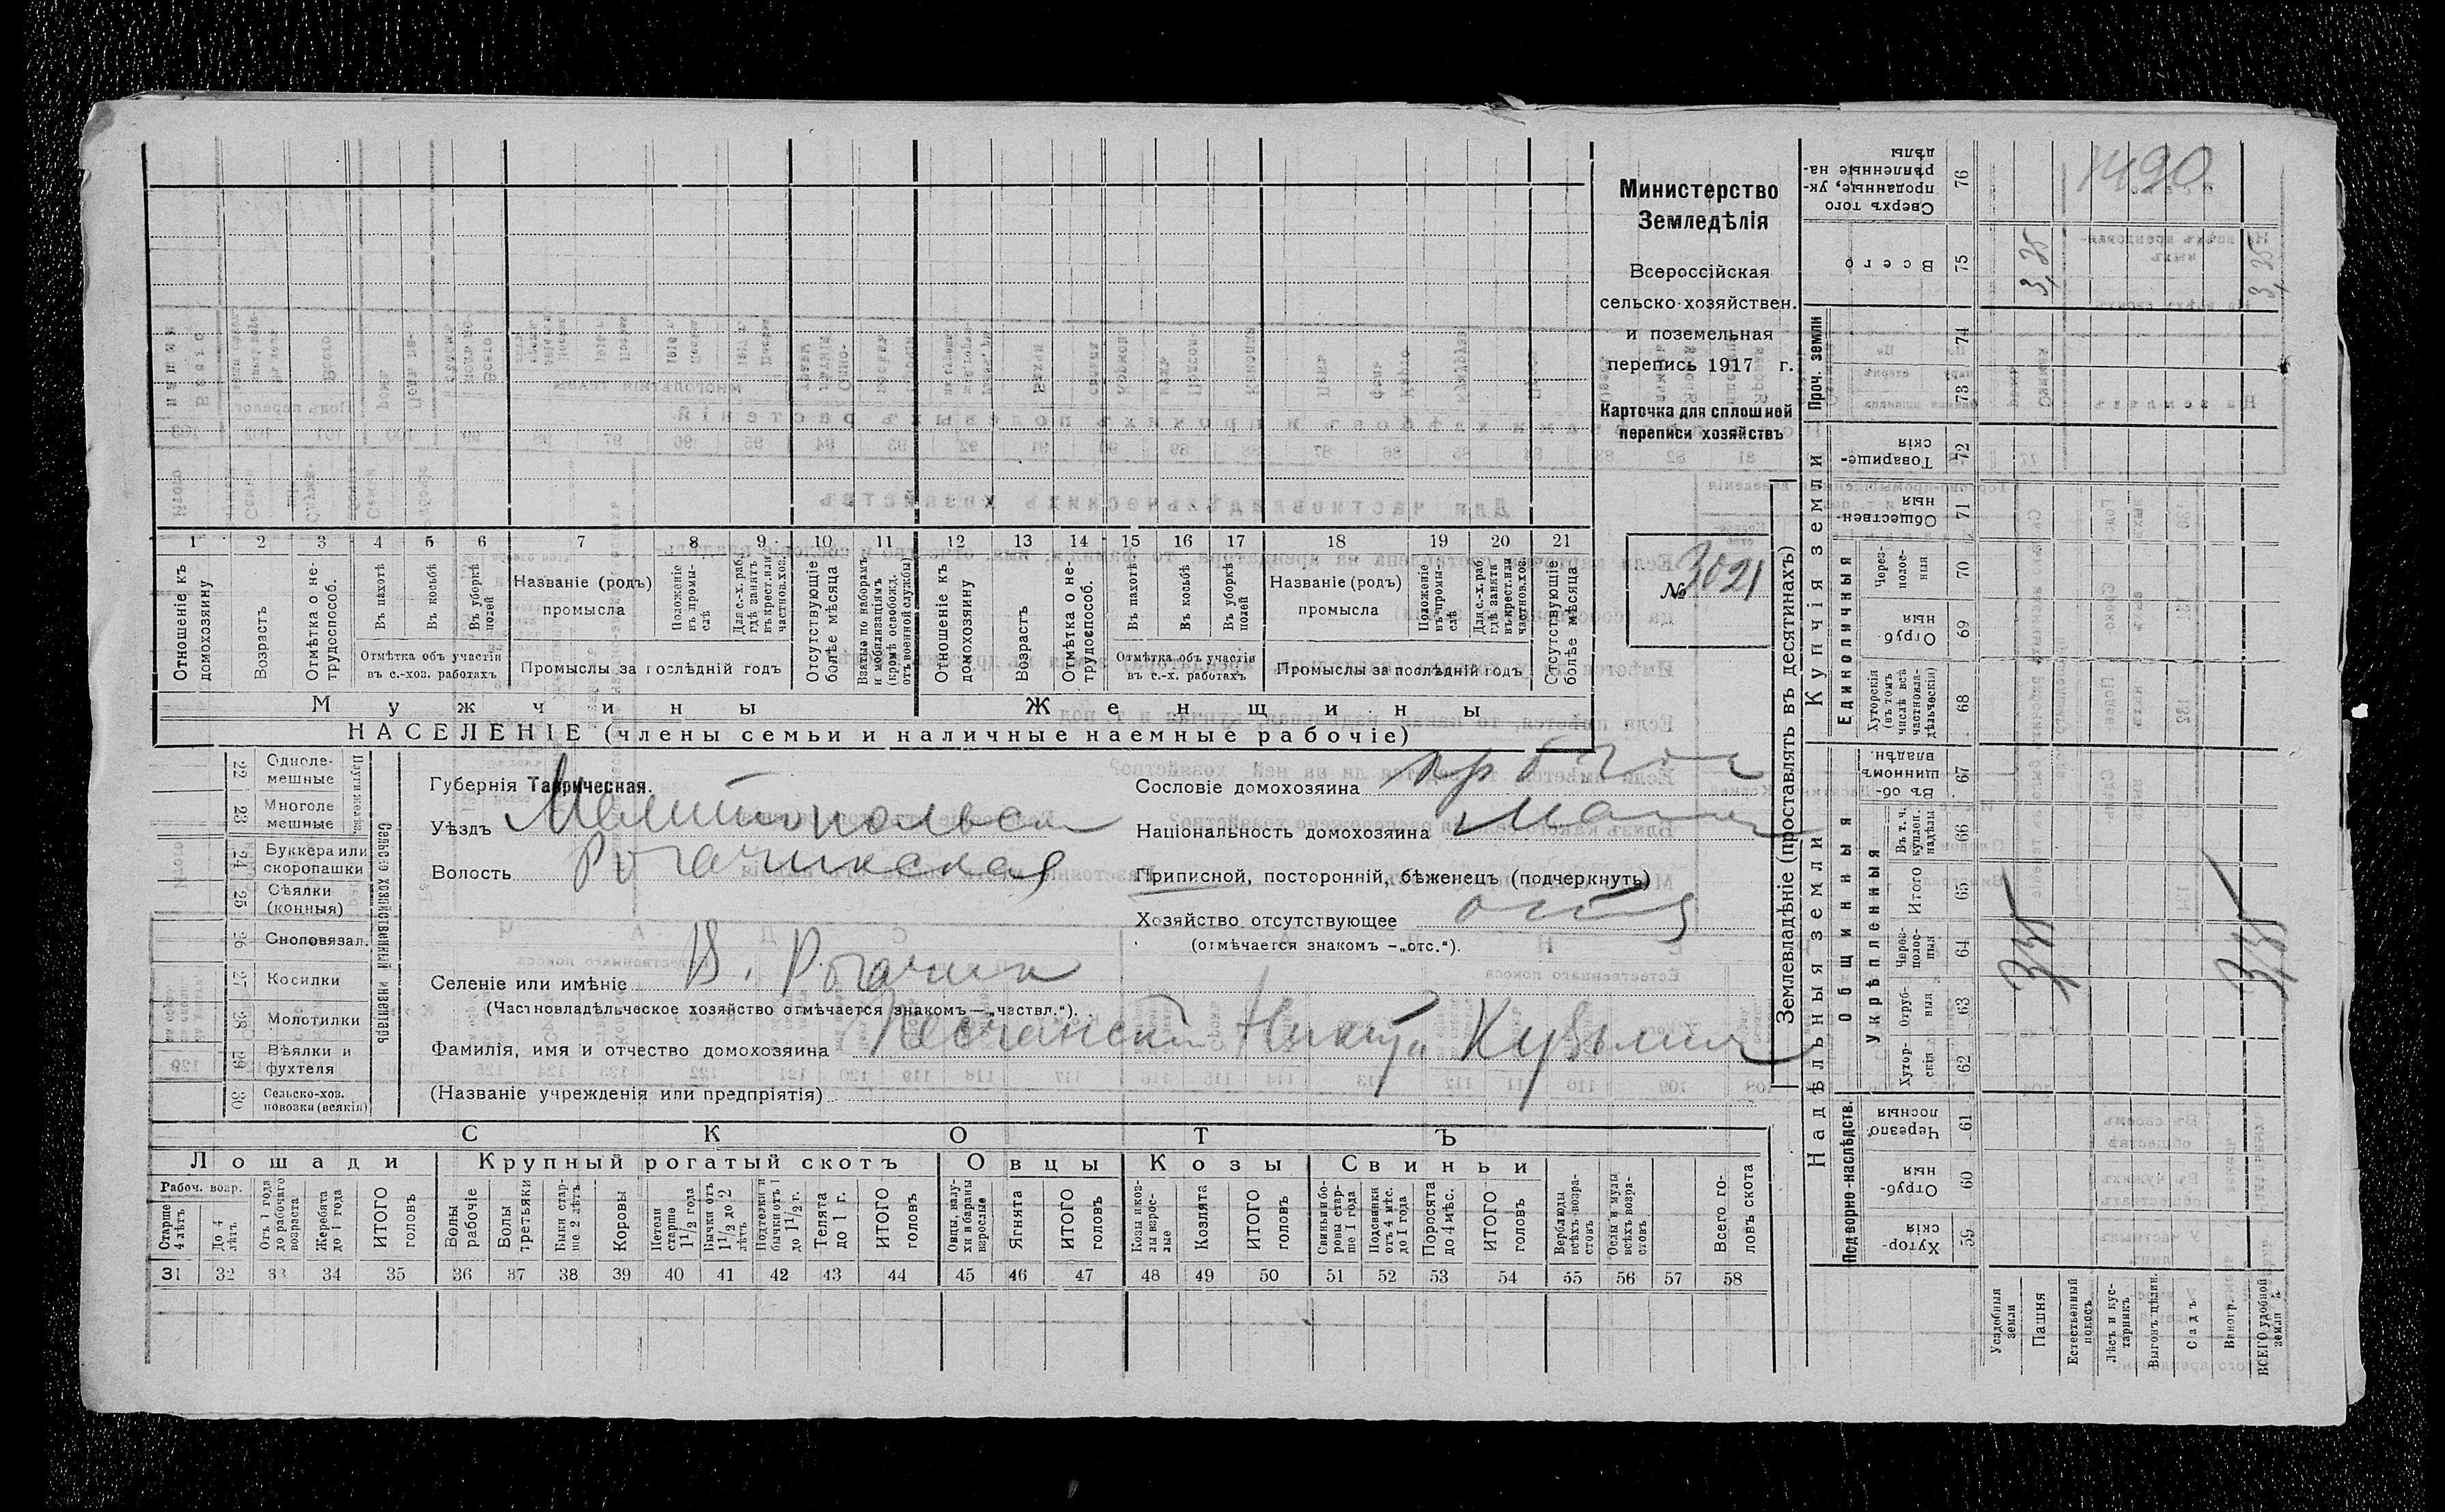 Министерство
Земледѣлія
Всероссійская
сельско-хозяйствен.
и поземельная
перепись 1917 г.
Карточка для сплошной
переписи хозяйствъ
№ 3021
1 2 3 4 5 6 7 8 9 10 11 12 13 14 15 16 17 18 19 20 21
Отношеніе къ домохозяину
Возрастъ
Отмѣтка о не-трудоспособ.
Въ пахотѣ
Въ косьбѣ
Въ уборкѣ полей
Отмѣтка объ участіи
въ с.-хоз. работахъ
Названіе (родъ)
промысла
Положеніе въ промы-слѣ
Для с.-х. раб. гдѣ занятъ въ крест. или частнов. хоз.
Промыслы за послѣдній годъ
Отсутствующіе болѣе мѣсяца
Взятые по наборамъ и мобилизаціямъ (кромѣ освобожд. отъ военной службы)
Отношеніе къ домохозяину
Возрастъ
Отмѣтка о не-трудоспособ.
Въ пахотѣ
Въ косьбѣ
Въ уборкѣ полей
Отмѣтка объ участіи
въ с.-х. работахъ
Названіе (родъ)
промысла
Положеніе въ промы-слѣ
Для с.-х. раб. гдѣ занята въ крест. или частнов. хоз.
Промыслы за послѣдній годъ
Отсутствующіе болѣе мѣсяца
Мужчины
Женщины
НАСЕЛЕНІЕ (члены семьи и наличные наемные рабочіе)
Сельско хозяйственный инвентарь
22 Одноле-мешные
23 Многоле мешные
24 Буккера или скоропашки
25 Сѣялки (конныя)
26 Сноповязал.
27 Косилки
28 Молотилки
29 Вѣялки и фухтеля
30 Сельско-хоз. повозки (всякія)
Губернія Таврическая.
Уѣздъ
Волость Рогачикская
Селеніе или имѣніе В. Рогачик
(Частновладѣльческое хозяйство отмѣчается знакомъ—„частвл.“).
Фамилія, имя и отчество домохозяина
(Названіе учрежденія или предпріятія)
Сословіе домохозяина
Національность домохозяина
Приписной, посторонній, бѣженецъ (подчеркнуть)
Хозяйство отсутствующее
(отмѣчается знакомъ —„отс.“).
СКОТЪ
Лошади
Крупный рогатый скотъ
Овцы
Козы
Свиньи
Рабоч. возр.
Старше 4 лѣтъ
До 4 лѣтъ
Отъ 1 года до рабочаго возраста
Жеребята до 1 года
ИТОГО головъ
Волы рабочіе
Волы третьяки
Быки стар-ше 2 лѣтъ
Коровы
Нетели старше 1 1/2 года
Бычки отъ 1 1/2 до 2 лѣтъ
Подтелки и бычки отъ 1 до 1 1/2 г.
Телята до 1 г.
ИТОГО головъ
Овцы, валу-хи и бараны взрослые
Ягнята
ИТОГО головъ
Козы и коз-лы взрос-лые
Козлята
ИТОГО головъ
Свиньи и бо-ровы стар-ше 1 года
Подсвинки отъ 4 мѣс. до 1 года
Поросята до 4 мѣс.
ИТОГО головъ
Верблюды всѣхъ возра-стовъ
Ослы и мулы всѣхъ возра-стовъ
Всего го-ловъ скота
31 32 33 34 35 36 37 38 39 40 41 42 43 44 45 46 47 48 49 50 51 52 53 54 55 56 57 58
Землевладѣніе (проставлять въ десятинахъ)
Надѣльныя земли
Купчія земли
Проч. земли
Подворно-наслѣдств.
Общинныя
Укрѣпленныя
Единоличныя
Сверхъ того проданные, ук-рѣпленные на-дѣлы 76
Всего 75
74
73
Товарище-скія 72
Обществен-ныя 71
Через-полос-ныя 70
Отруб-ныя 69
Хуторскія (въ томъ числѣ всѣ частновла-дѣльческія) 68
Въ об-щинномъ владѣн. 67
Въ т. ч. куплен. надѣлы 66
Итого 65
Через-полос-ныя 64
Отруб-ныя 63
Хутор-скія 62
Черезпо-лосныя 61
Отруб-ныя 60
Хутор-скія 59
Усадебныя земли
Пашня
Естественный покосъ
Лѣсъ и кус-тарникъ
Выгонъ цѣлин.
Садъ
Виногр.
ВСЕГО удобной земли
3,25
3,25